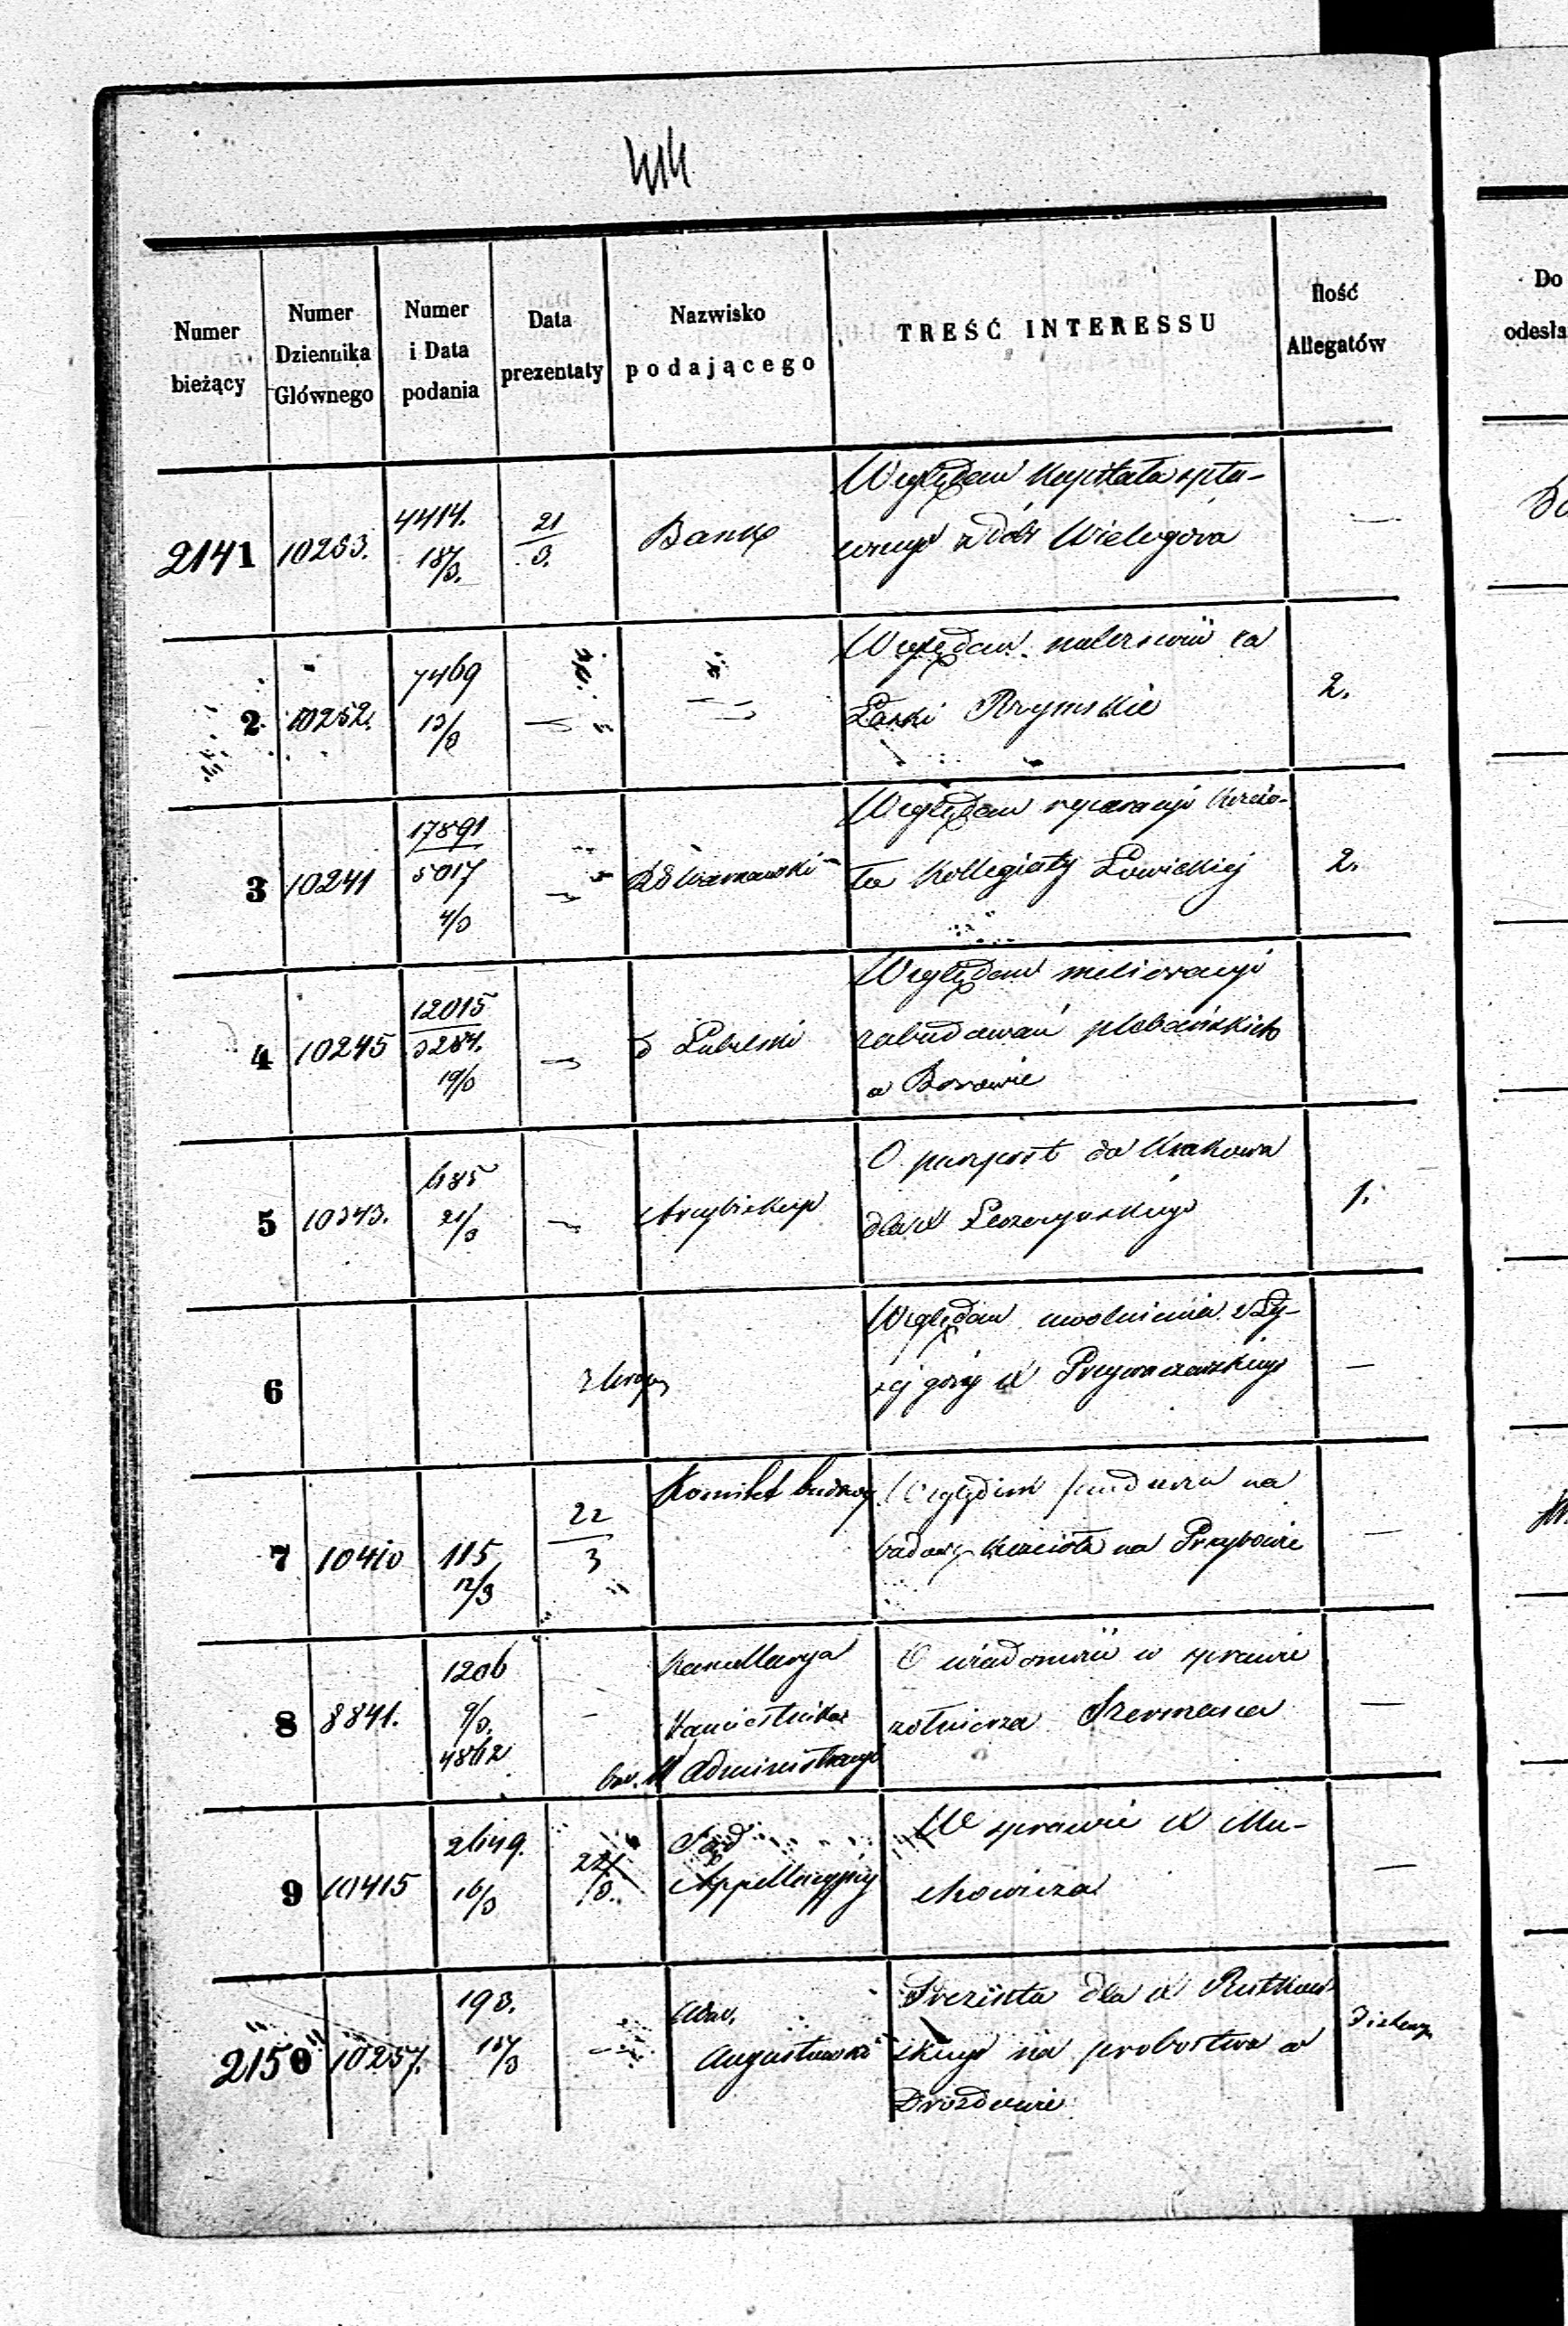 Numer bieżący
Numer Dziennika Głównego
Numer i Data podania
Data prezentaty
Nazwisko podającego
TREŚĆ INTERESSU
Ilość Allegatów
Do
odesła
2141 10253. 4414. 18/3. 21/3. Bank
Względem Kapitału spła-
conego z dóbr Wielgóra —
2 10252. 7469 13/3 — —
Względem należności za
Łaski Rzymskie 2.
3 10241 17891 5017 4/3 — Warszawski
Względem reparacyi Kościo-
ła Kollegiaty Łowickiej 2.
4 10245 12015 3284. 19/3 — Lubelski
Względem melioracyi
zabudowań plebańskich
w Borowie
5 10343. 485 21/3 — Arcybiskup
O paszport do Krakowa
dla X Leszczyńskiego 1.
6
Względem uwolnienia z Ły-
sej góry X Przywaczewskiego —
7 10410 115 12/3 22/3 Komitet budowy
Względem funduszu na
budowę kościoła na Grzybowie —
8 8841. 1206 9/3. 4862 — Kancellarya
Namiestnika
Administracyi
O wiadomość w sprawie
żołnierza Szermana —
9 10415 2649. 16/3 22/3. Sąd
Appellacyjny
W sprawie X Mu-
chowicza —
2150 10257. 193. 18/3 —
Augustowski
Prezenta dla X Rutkow-
skiego na probostwo w
Drozdowie